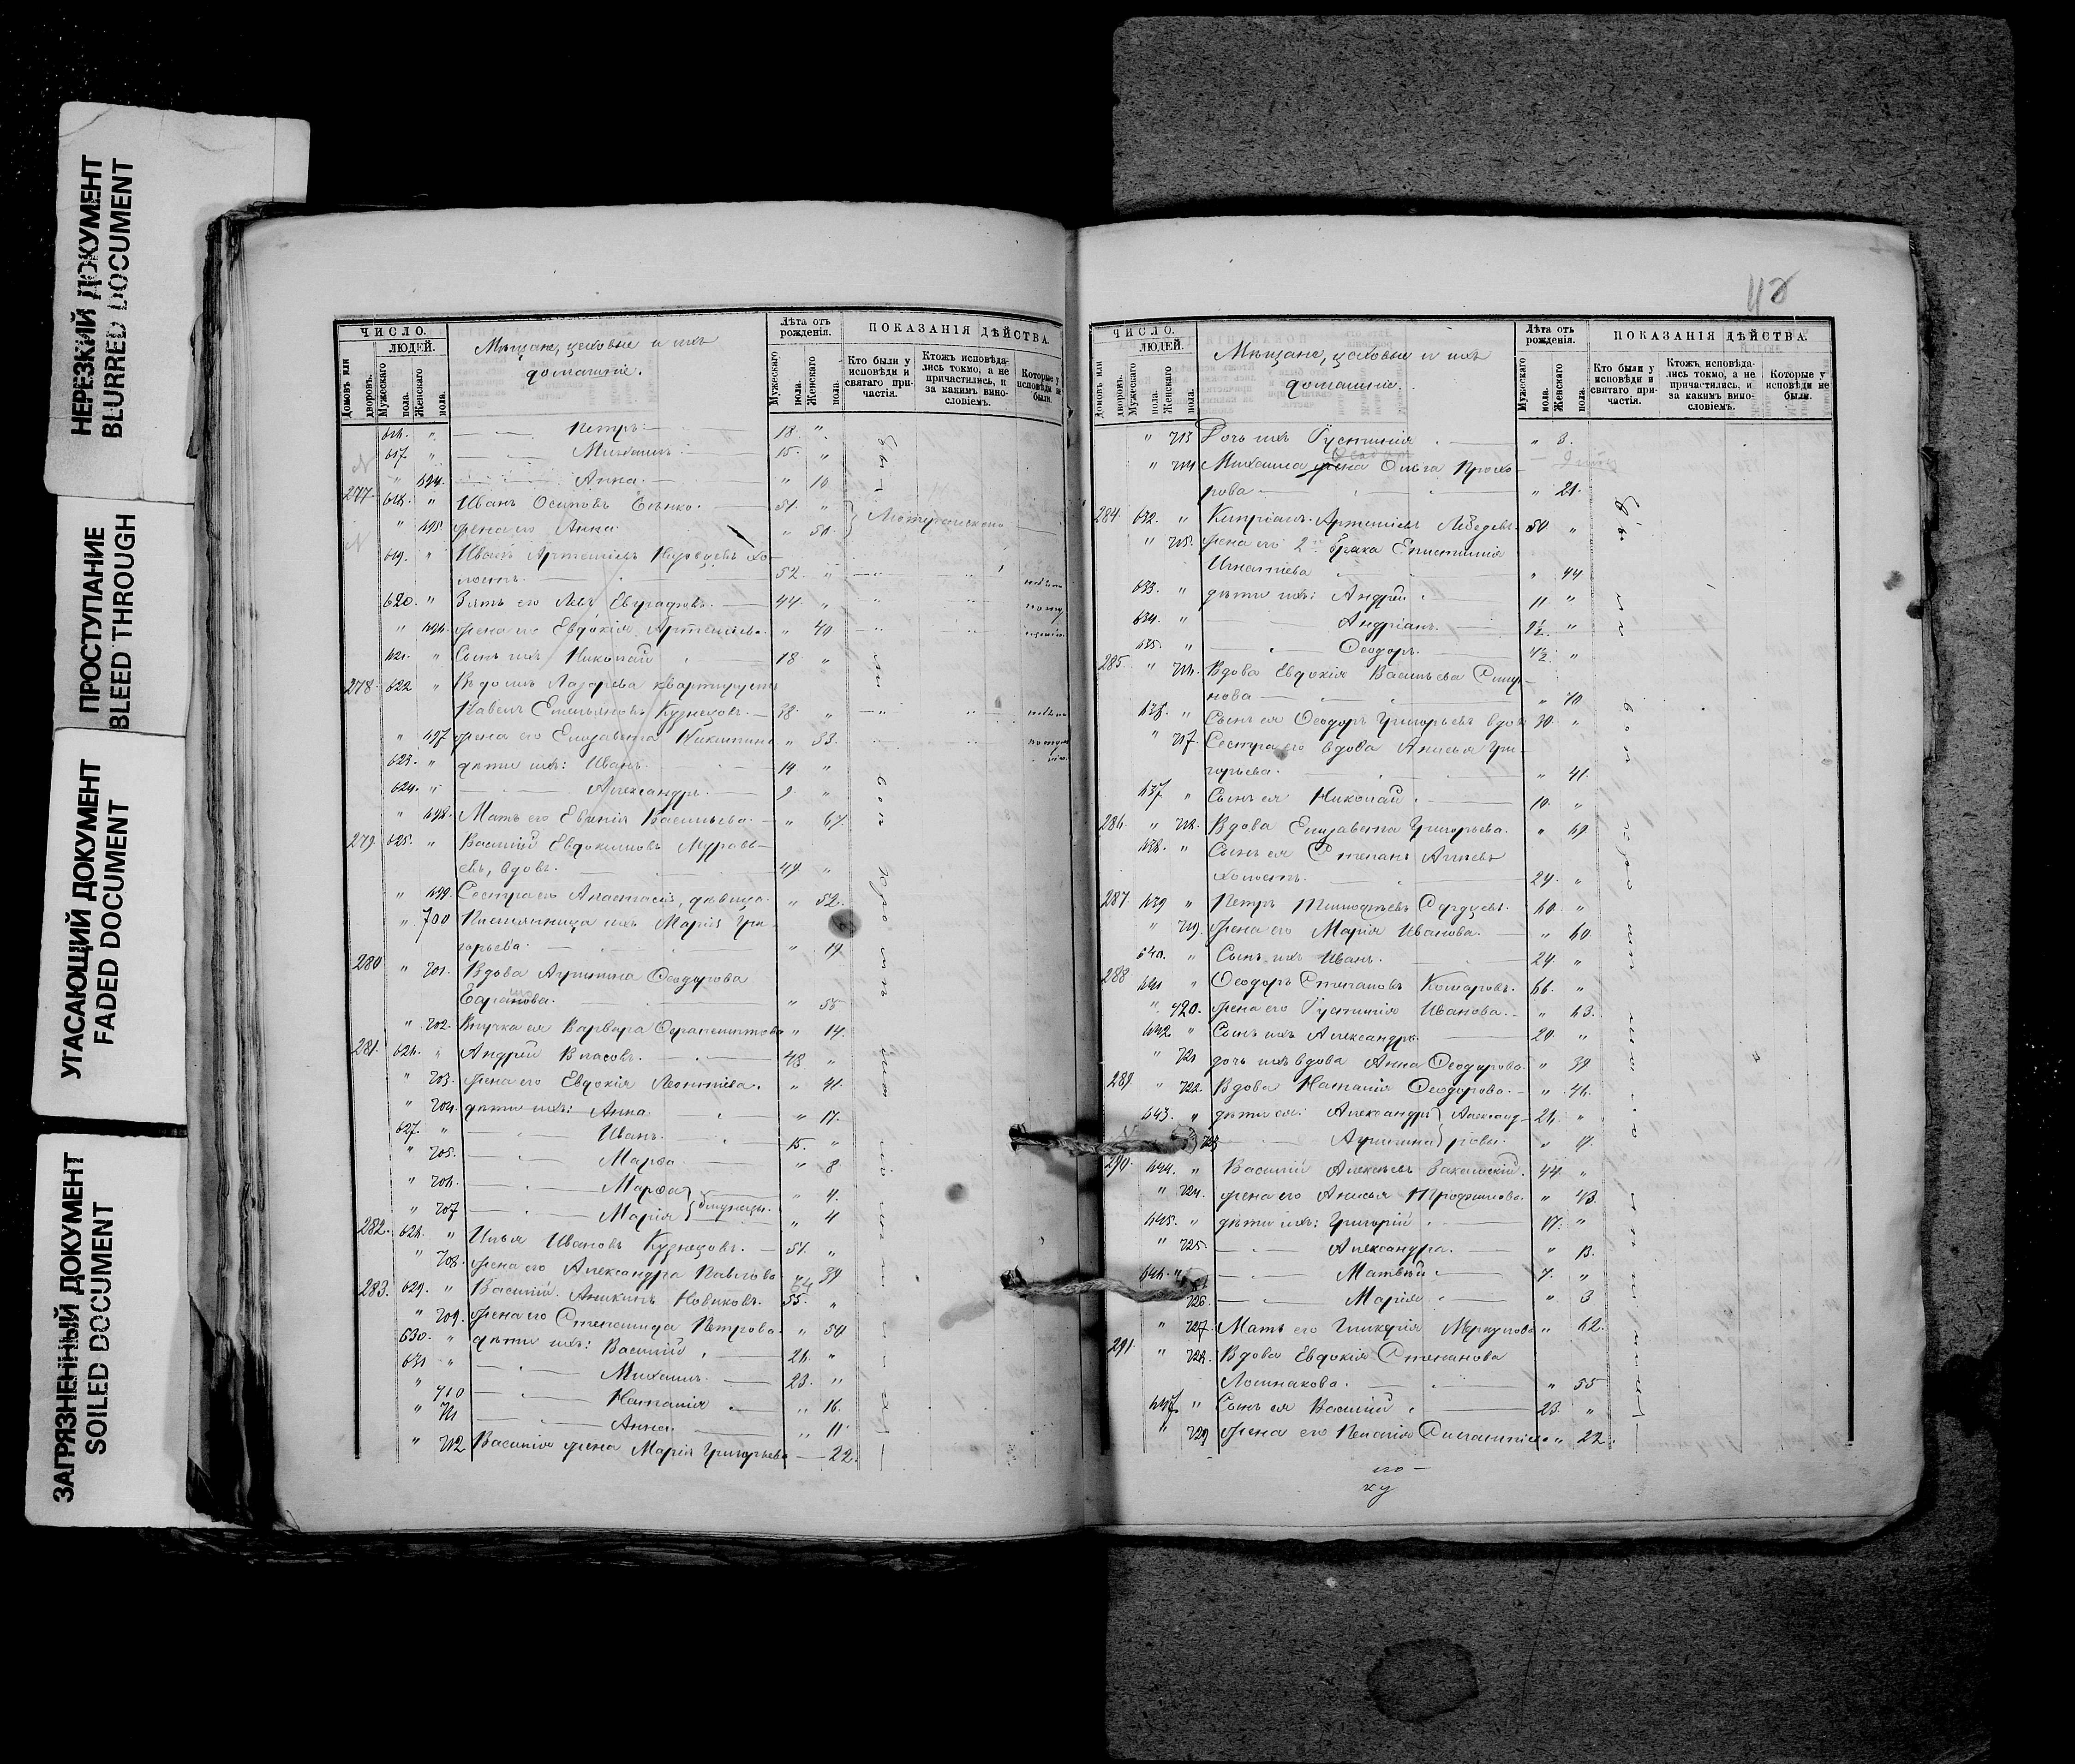 НЕРЕЗКИЙ ДОКУМЕНТ
BLURRED DOCUMENT
ПРОСТУПАНИЕ
BLEED THROUGH
УГАСАЮЩИЙ ДОКУМЕНТ
FADED DOCUMENT
ЗАГРЯЗНЕННЫЙ ДОКУМЕНТ
SOILED DOCUMENT
ЧИСЛО.
ЛЮДЕЙ.
Домовъ или дворовъ.
Мужескаго пола.
Женскаго пола.
Мѣщане, цеховые и ихъ
домашніе.
Лѣта отъ рожденія.
Мужескаго пола.
Женскаго пола.
ПОКАЗАНІЯ ДѢЙСТВА.
Кто были у исповѣди и святаго причастія.
Ктожъ исповѣдались токмо, а не причастились, и за какимъ винословіемъ.
Которые у исповѣди не были.
616. " Петръ 18. "
617 " Михаилъ 15. "
" 694. Анна " 10
277 618. " Иванъ Осиповъ 51. "
" 695 жена его Анна " 50
619. " Иванъ Артемьевъ хо-
лостъ. 52. "
620. " Зять его Левъ Евграфовъ. 44. "
" 696. жена его Евдокія Артемьева. " 40
621. " Сынъ ихъ Николай 18 "
278. 622 " Въ домѣ Лазарева квартируетъ
Павелъ Емельяновъ Кузнецовъ. 38 "
" 697 жена его Елизавета Никитина " 33.
623. " дѣти ихъ: Иванъ. 14 "
624. " Александръ. 9. "
" 698. Мать его Евгенія Васильева. " 67.
279. 625. " Василій Евдокимовъ Муравь-
евъ, вдовъ. 49 "
" 699. Сестра его Анастасія, дѣвица. " 52.
" 700 Племянница ихъ Марія Гри-
горьева. " 19.
280 " 701. Вдова Агрипина Ѳеодорова
Баранова. " 55
" 702. Внучка ея Варвара " 14.
281. 626. " Андрей Власовъ. 43 "
" 703. жена его Евдокія Леонтіева. " 41.
" 704. дѣти ихъ: Анна " 17.
627. " Иванъ. 15. "
" 705. Марѳа " 8.
" 706. Марѳа " 4.
" 707 Марія близнецы. " 4
282. 628. " Илья Ивановъ Кузнецовъ. 51. "
" 708. жена его Александра Павлова " 39
283. 629. " Василій Аникинъ Новиковъ. 55. "
" 709. жена его Степанида Петрова. " 54
630. " дѣти ихъ: Василій 26. "
631 " Михаилъ. 23. "
" 710 Наталія " 16.
" 711 Анна. " 11.
" 712 Василія жена Марія Григорьева 22.
ЧИСЛО.
ЛЮДЕЙ.
Домовъ или дворовъ.
Мужескаго пола.
Женскаго пола.
Мѣщане, цеховые и ихъ
домашніе.
Лѣта отъ рожденія.
Мужескаго пола.
Женскаго пола.
ПОКАЗАНІЯ ДѢЙСТВА.
Кто были у исповѣди и святаго причастія.
Ктожъ исповѣдались токмо, а не причастились, и за какимъ винословіемъ.
Которые у исповѣди не были.
" 713 Дочь ихъ Іустинія " 3.
" 714 Михаила жена Ольга Прохо-
рова " 21.
284 632. " Кипріанъ Артемьевъ Лебедевъ. 50 "
" 715. жена его 2 брака Епистимія
Игнатіева " 44
633. " дѣти ихъ: Андрей 11 "
634. " Андріанъ. 9½. "
635. " Ѳеодоръ. 4½ "
285 " 716. Вдова Евдокія Васильева Смир-
нова " 70
636. " Сынъ ея Ѳеодоръ Григорьевъ вдов. 30. "
" 717. Сестра его вдова Анисья Гри-
горьева. " 41.
637 " Сынъ ея Николай 10. "
286. " 718. Вдова Елизавета Григорьева. " 69.
638. " Сынъ ея Степанъ
холостъ. 24. "
287. 639 " Петръ Тимофѣевъ 60. "
" 719. Жена его Марія Иванова. " 60
640. " Сынъ ихъ Иванъ. 24. "
288 641 " Ѳеодоръ Степановъ Комаровъ. 66. "
" 720. жена его Іустинія Иванова. " 63.
642 " Сынъ ихъ Александръ 20. "
" 721 дочь ихъ вдова Анна Ѳеодорова. " 39
289. " 722. Вдова Наталія Ѳеодорова. " 46.
643. " дѣти ея: Александръ Александ- 26. "
723 Агрипина ровы. " 17.
290. 644. " Василій Алексѣевъ 44. "
" 724. жена его Анисья Трофимова " 43.
645. " дѣти ихъ: Григорій 17. "
" 725. Александра. " 13.
646. " Матвѣй 7. "
726. Марія " 3
" 727. Мать его Гликерія Меркулова " 62.
291. " 728. Вдова Евдокія Степанова
Лошнакова. " 55
647 " Сынъ ея Василій 23. "
" 729 Жена его Пелагія " 22.